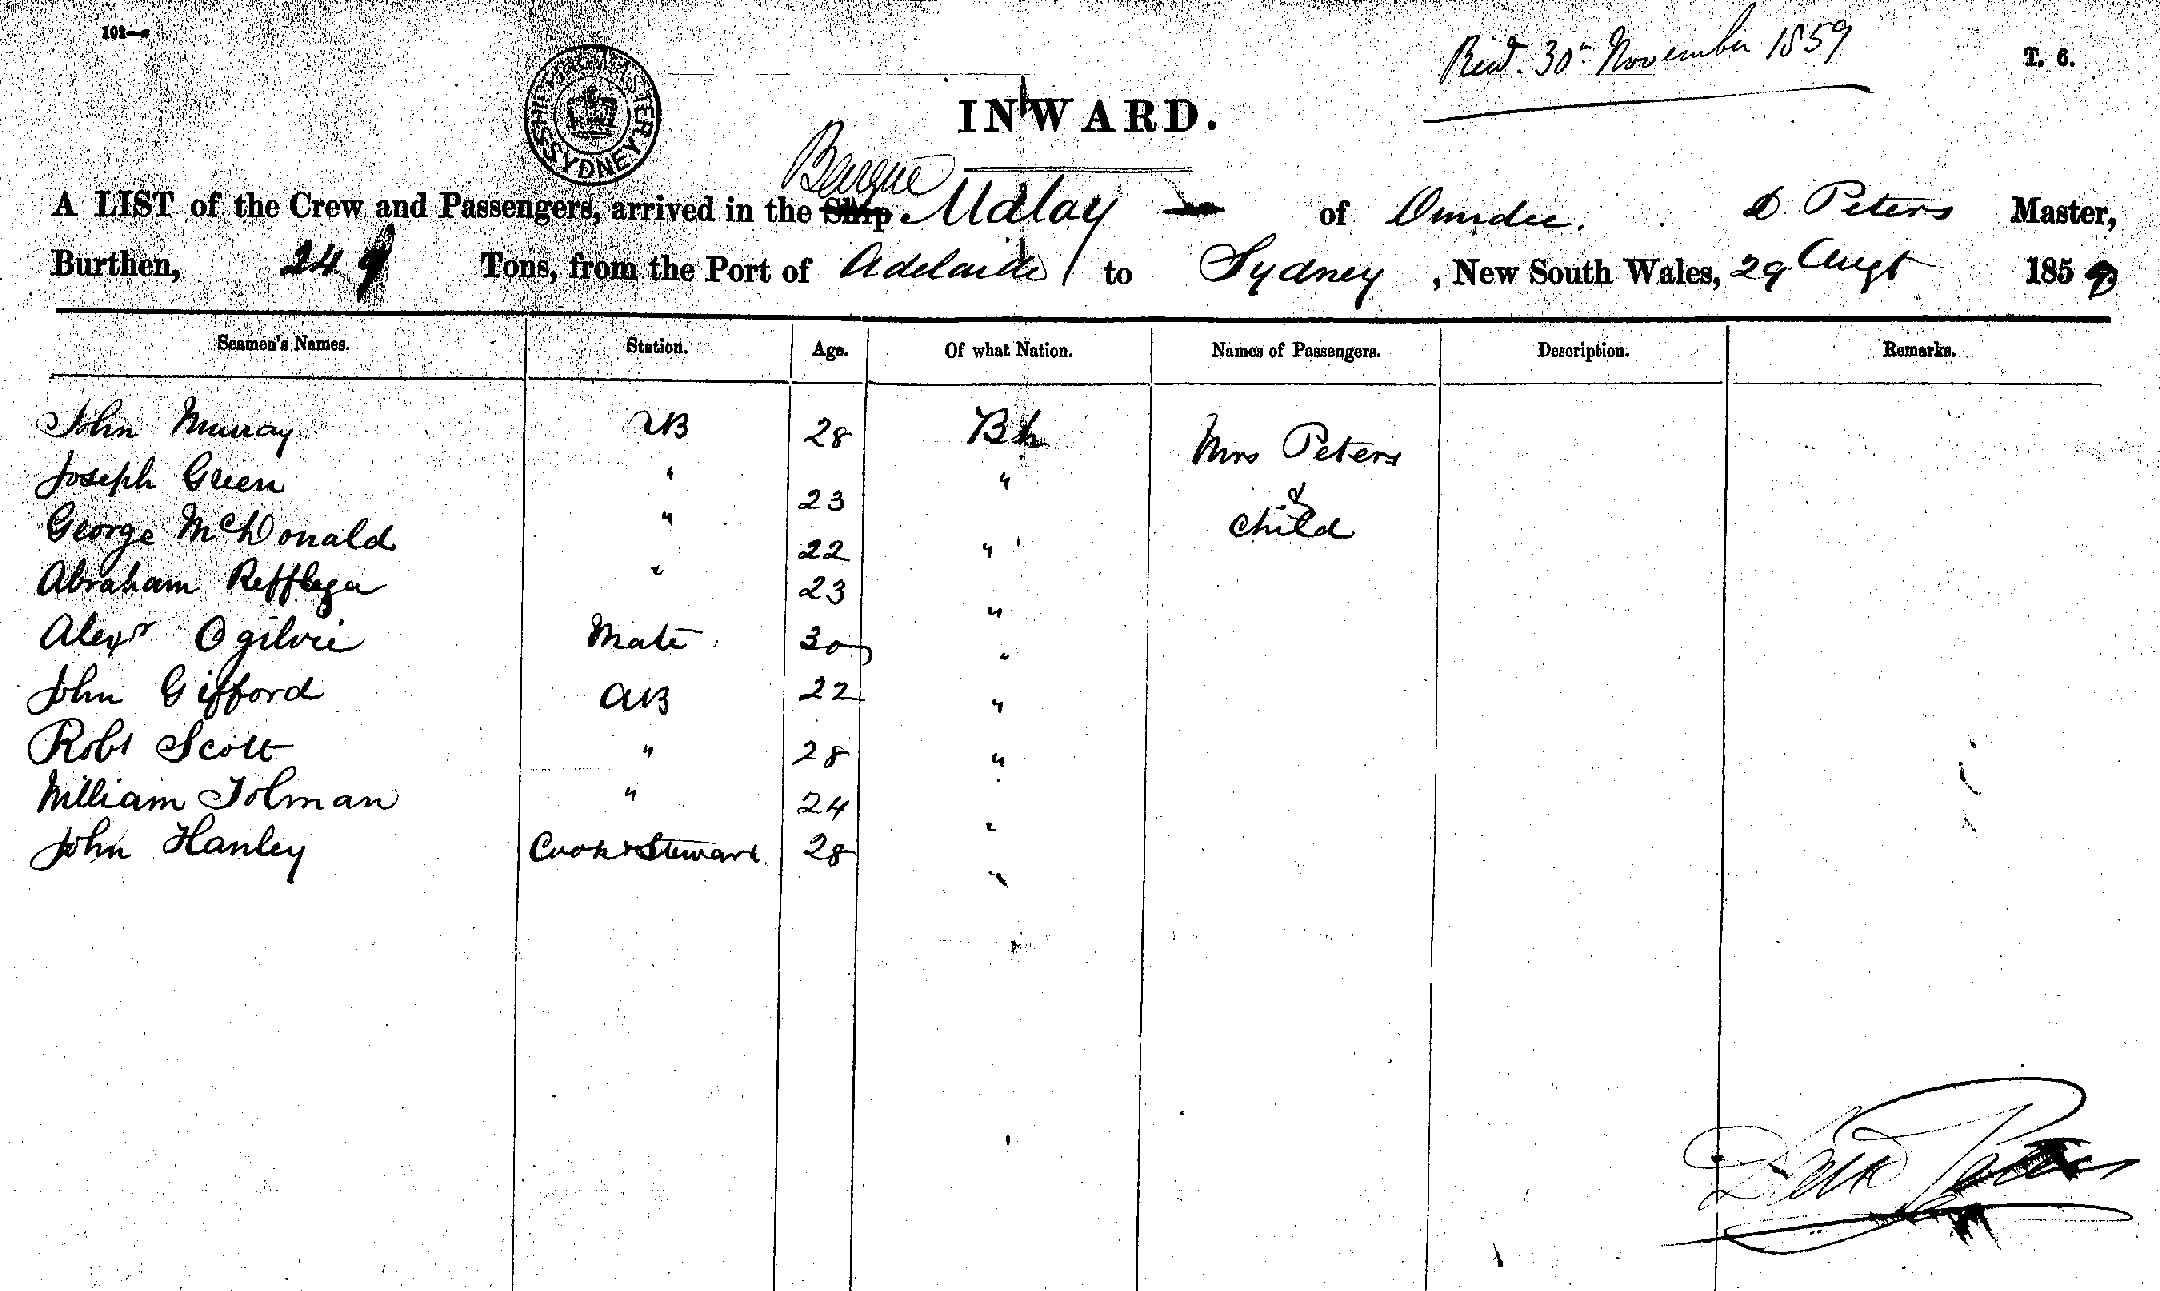 101—c
Recd. 30th November 1859
T. 6.
SHIPPING MASTER SYDNEY
INWARD.
Barque
A LIST of the Crew and Passengers, arrived in the Ship Malay of Dundee. D. Peters Master,
Burthen, 249 Tons, from the Port of Adelaide to Sydney, New South Wales, 29 Augt 1859
Seamen's Names. Station. Age. Of what Nation. Names of Passengers. Description. Remarks.
John Murray AB 28 Bh Mrs Peters
Joseph Green " 23 " &
George McDonald " 22 " child
Abraham " 23 "
Alexr Ogilvie Mate 30 "
John Gifford AB 22 "
Robt Scott " 28 "
William Tolman " 24 "
John Hanley Cook & Steward 28 "
Peters